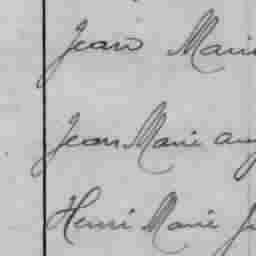 Jean Marie
Jean Marie Aug
Henri Marie J